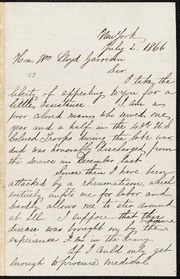 New York
July 2. 1866
Hon. Wm Lloyd Garrison
Sir.
I take the
liberty of appealing to you for a
little assistance. I am a
poor colored man, who served one
year and a half in the 43d U.S.
Colored Troops during the late war,
and was honorably discharged from
the service in December last.
Since then I have been
attacked by a rheumatism, which
entirely unfits me for labor and
hardly allows me to stir around
at all. I suppose that this
disease was brought on by the
experience I in the Army.
If I could only get
enough to procure medical